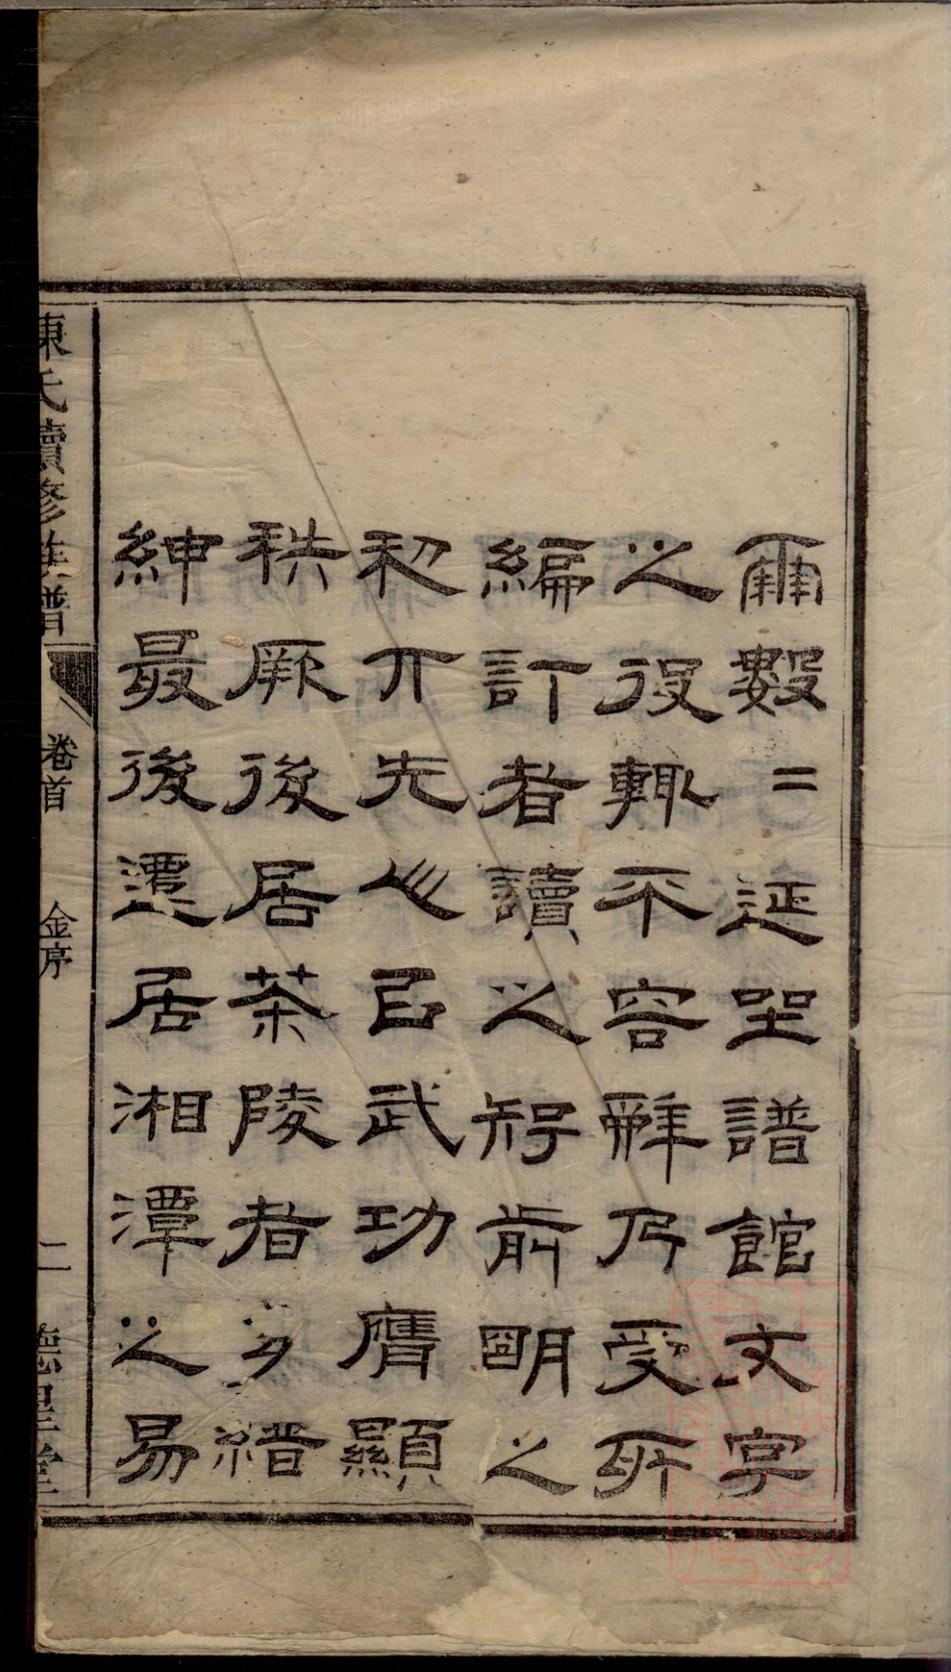 爾數二延坐譜館文字
之役輒不容辭乃受所
編訂者讀之知前明之
初亓先世以武功膺顯
秩厥後居茶陵者多縉
紳最後遷居湘潭之易
陳氏續修族譜 卷首 金序 二 德星堂